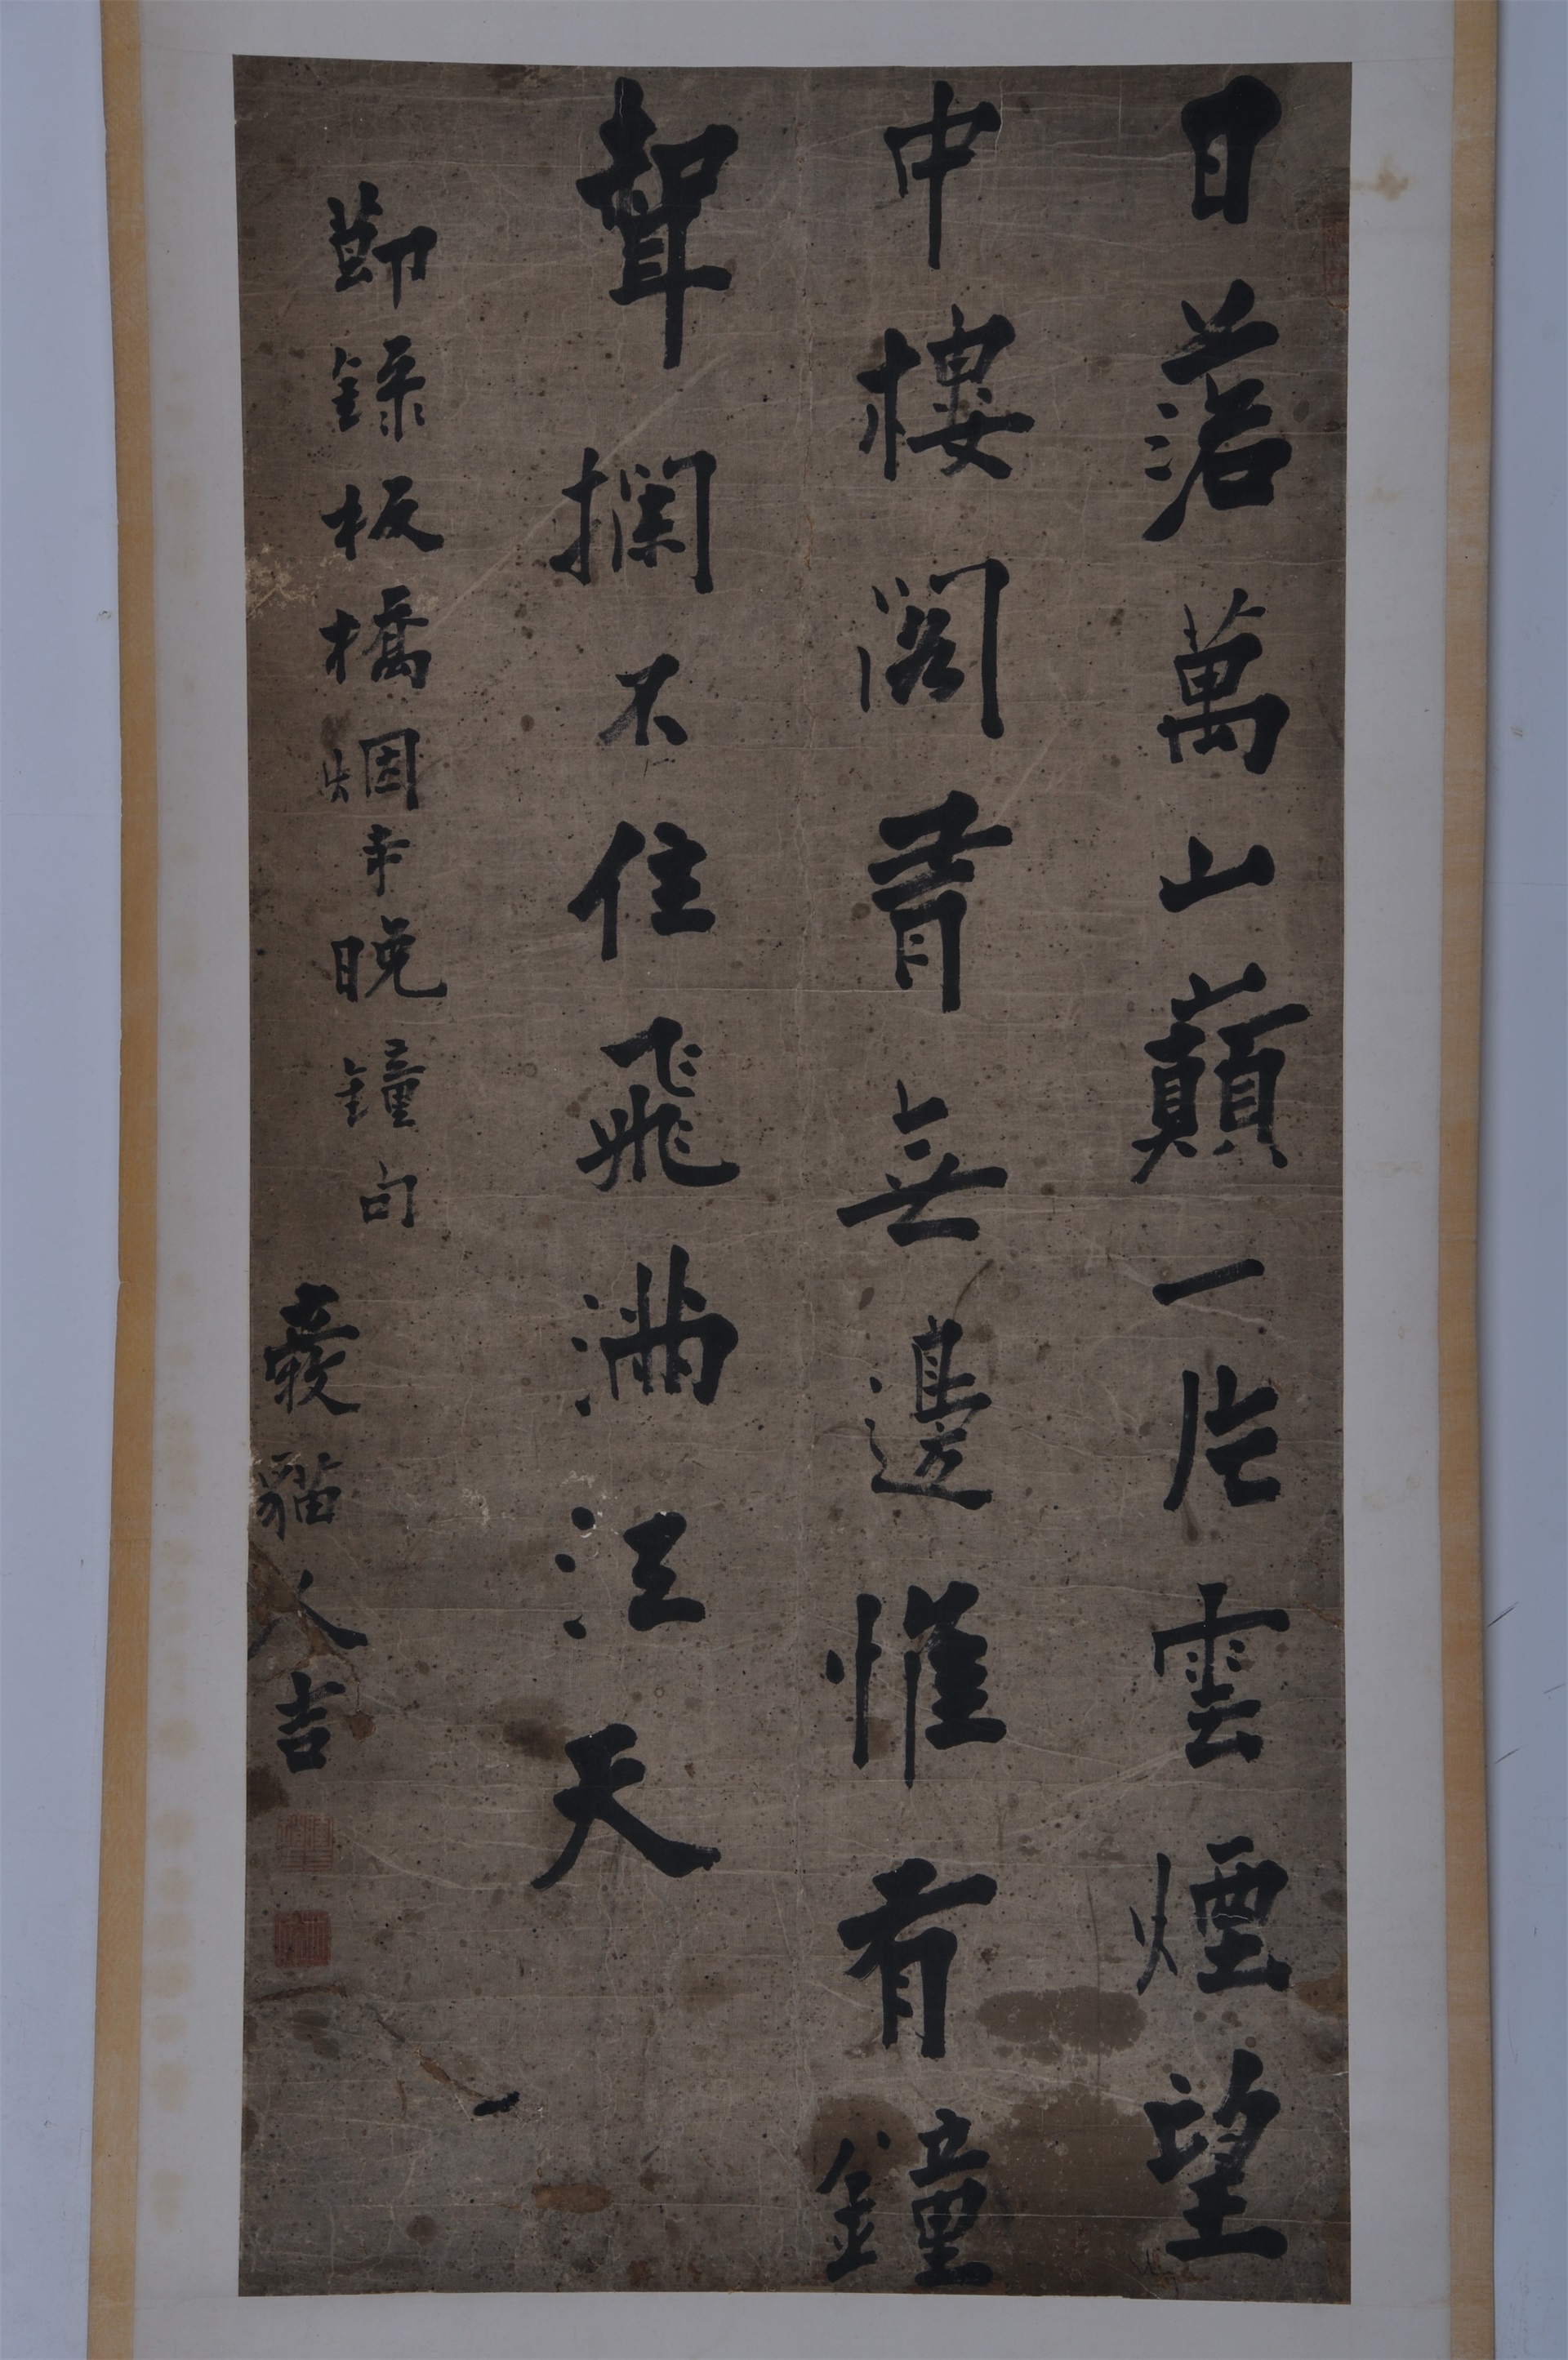 日落萬山巔一片雲煙望
中樓閣有無邊惟有鐘
聲攔不住飛滿江天
節錄板橋烟寺晚鐘句
人吉